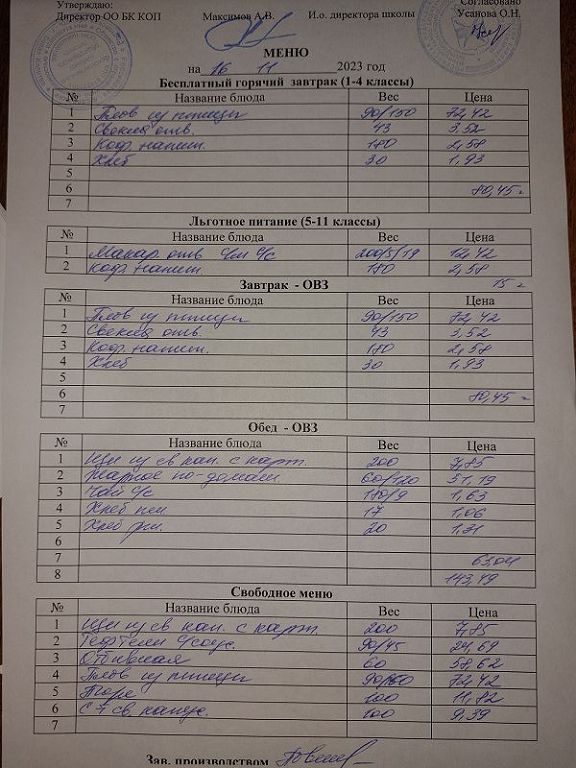 Утверждаю: Согласовано
Директор ОО БК КОП Максимов А.В. И.о. директора школы Усанова О.Н.
МЕНЮ
на 16 11 2023 год
Бесплатный горячий завтрак (1-4 классы)
№ Название блюда Вес Цена
1 Плов из птицы 90/150 72,42
2 Свекла отв. 43 3,52
3 Коф. напит. 180 2,58
4 Хлеб 30 1,93
5
6 80,45
7
Льготное питание (5-11 классы)
№ Название блюда Вес Цена
1 Макар отв с/м с/с 200/5/19 12,42
2 Коф. напит 180 2,58
15
Завтрак - ОВЗ
№ Название блюда Вес Цена
1 Плов из птицы 90/150 72,42
2 Свекла отв. 43 3,52
3 Коф. напит. 180 2,58
4 Хлеб 30 1,93
5
6 80,45
7
Обед - ОВЗ
№ Название блюда Вес Цена
1 Щи из св кап. с карт. 200 7,85
2 Жаркое по-домаш 60/120 51,19
3 Чай с/с 180/9 1,63
4 Хлеб пш 17 1,06
5 Хлеб рж. 20 1,31
6
7 63,04
8 143,49
Свободное меню
№ Название блюда Вес Цена
1 Щи из св кап. с карт. 200 7,85
2 Тефтели с/соус. 90/45 24,69
3 Отбивная 60 58,62
4 Плов из птицы 72,42
5 Пюре 100 11,82
6 С-т св. капус. 100 9,39
7
Зав. производством